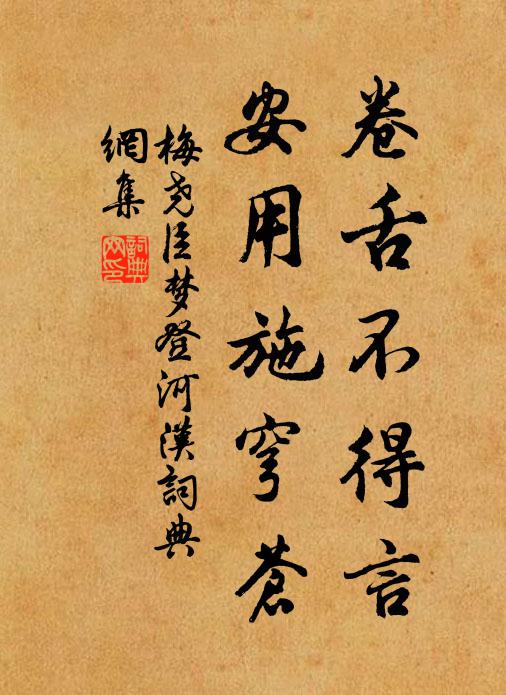 卷舌不得言
安用施穹蒼
梅堯臣梦登河漢詞典
網集
詞典
网印